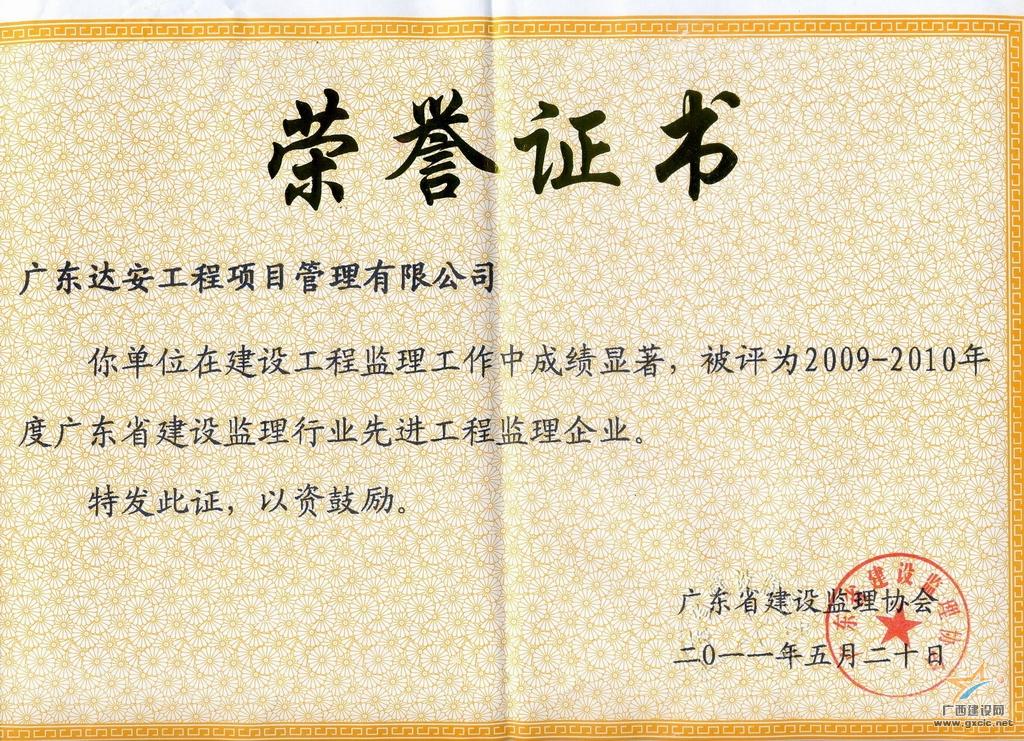 荣誉证书
广东达安工程项目管理有限公司
你单位在建设工程监理工作中成绩显著，被评为2009-2010年
度广东省建设监理行业先进工程监理企业。
特发此证，以资鼓励。
广东省建设监理协会
二〇一一年五月二十日
东省建设监理协
广西建设网
www.gxcic.net